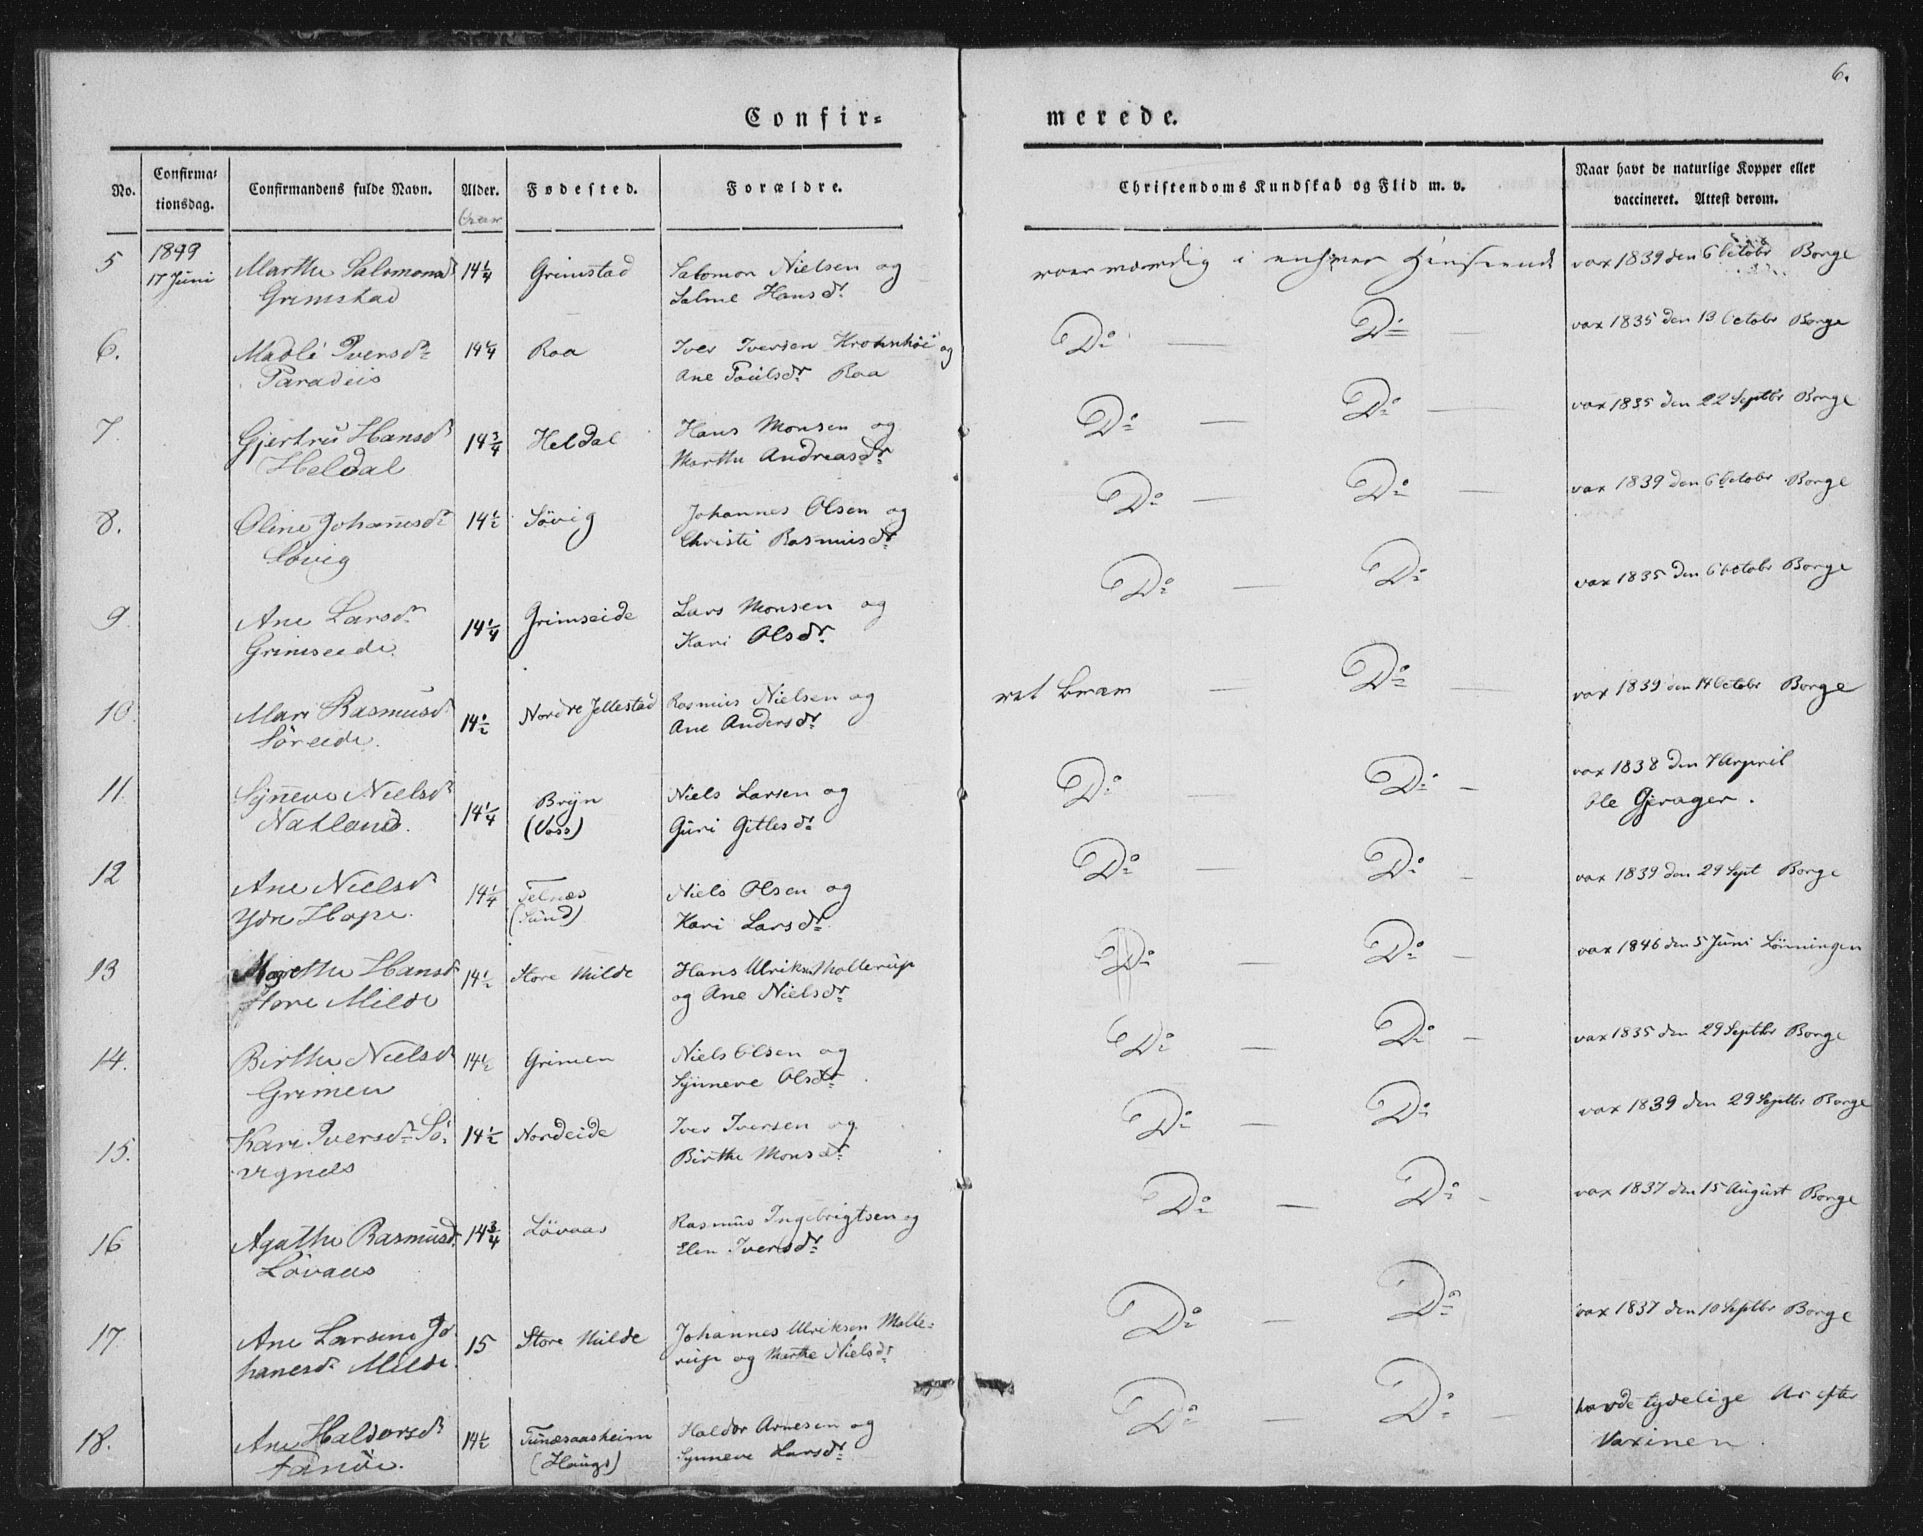 6.
Confir-
merede.
No.
Confirma-
tionsdag.
Confirmandens fulde Navn.
Alder.
Fødested.
Forældre.
Christendoms Kundskab og Flid m. v.
Naar havt de naturlige Kopper eller
vaccineret. Attest derom.
5
1849
17 Juni
Marthe Salomonsd
Grimstad
14 1/4
Grimstad
Salomon Nielsen og
Salme Hansdr
i enhver Henseende
vax 1839 den 6 Octobr Borge
6.
Madli Iversdr
Paradiis
14 1/4
Roa
Iver Iversen Krohnhöi og
Ane Poulsdr Roa
Do — Do —
vax 1835 den 13 Octobr Borge
7.
Gjertru Hansd
Heldal
14 3/4
Heldal
Hans Monsen og
Marthe Andreasdr
Do — Do —
vax 1835 den 22 Septbr Borge
8.
Oline Johanesdr
Sövig
14 1/2
Sövig
Johannes Olsen og
Christi Rasmusdr
Do — Do —
vax 1839 den 6 Octobr Borge
9.
Ane Larsdr
Grimseide
14 1/4
Grimseide
Lars Monsen og
Kari Olsdr
Do — Do
vax 1835 den 6 Octobr Borge
10.
Mari Rasmusd
Söreide.
14 1/2
Nordre Jellestad
Rasmus Nielsen og
Ane Andersdr
ret — Do —
vax 1839 den 14 Octobr Borge
11.
Synneve Nielsdr
Natland.
14 1/4
Bryn
(Voss)
Niels Larsen og
Guri Gitlesdr
Do — Do —
vax 1838 den 7 April
Ole Gjerager.
12
Ane Nielsdr
Ydre Hope.
14 1/4
Telnæs
(Sund)
Niels Olsen og
Kari Larsdr
Do — Do —
vax 1839 den 29 Sept Borge
13
Magrethe Hansd
Store Milde
14 1/2
Store Milde
Hans Ulriksen Mollerup
og Ane Nielsdr
Do — Do —
vax 1846 den 5 Juni Lönningen
14.
Birthe Nielsd
Grimen
14 1/2
Grimen
Niels Olsen og
Synneve Olsdr
Do — Do —
vax 1835 den 29 Septbr Borge
15.
Kari Iversdr Sö-
vignæs
14 1/2
Nordeide
Iver Iversen og
Birthe Monsdr
Do — Do
vax 1839 den 29 Septbr Borge
16
Agathe Rasmusd.
Lövaas
14 3/4
Lövaas
Rasmus Ingebrigtsen og
Elen Iversdr
Do — Do —
vax 1837 den 15 August Borge
17.
Ane Larsine Jo-
hanesdr Milde.
15
Store Milde
Johannes Ulriksen Molle-
rup og Marthe Nielsdr
Do — Do
vax 1837 den 10 Septbr Borge
18.
Ane Haldorsdr
Fanöe.
14 1/2
(Haugs)
Haldor Arnesen og
Synneve Larsdr
Do — Do —
havde tydelige Ar efter
Vaxinen.